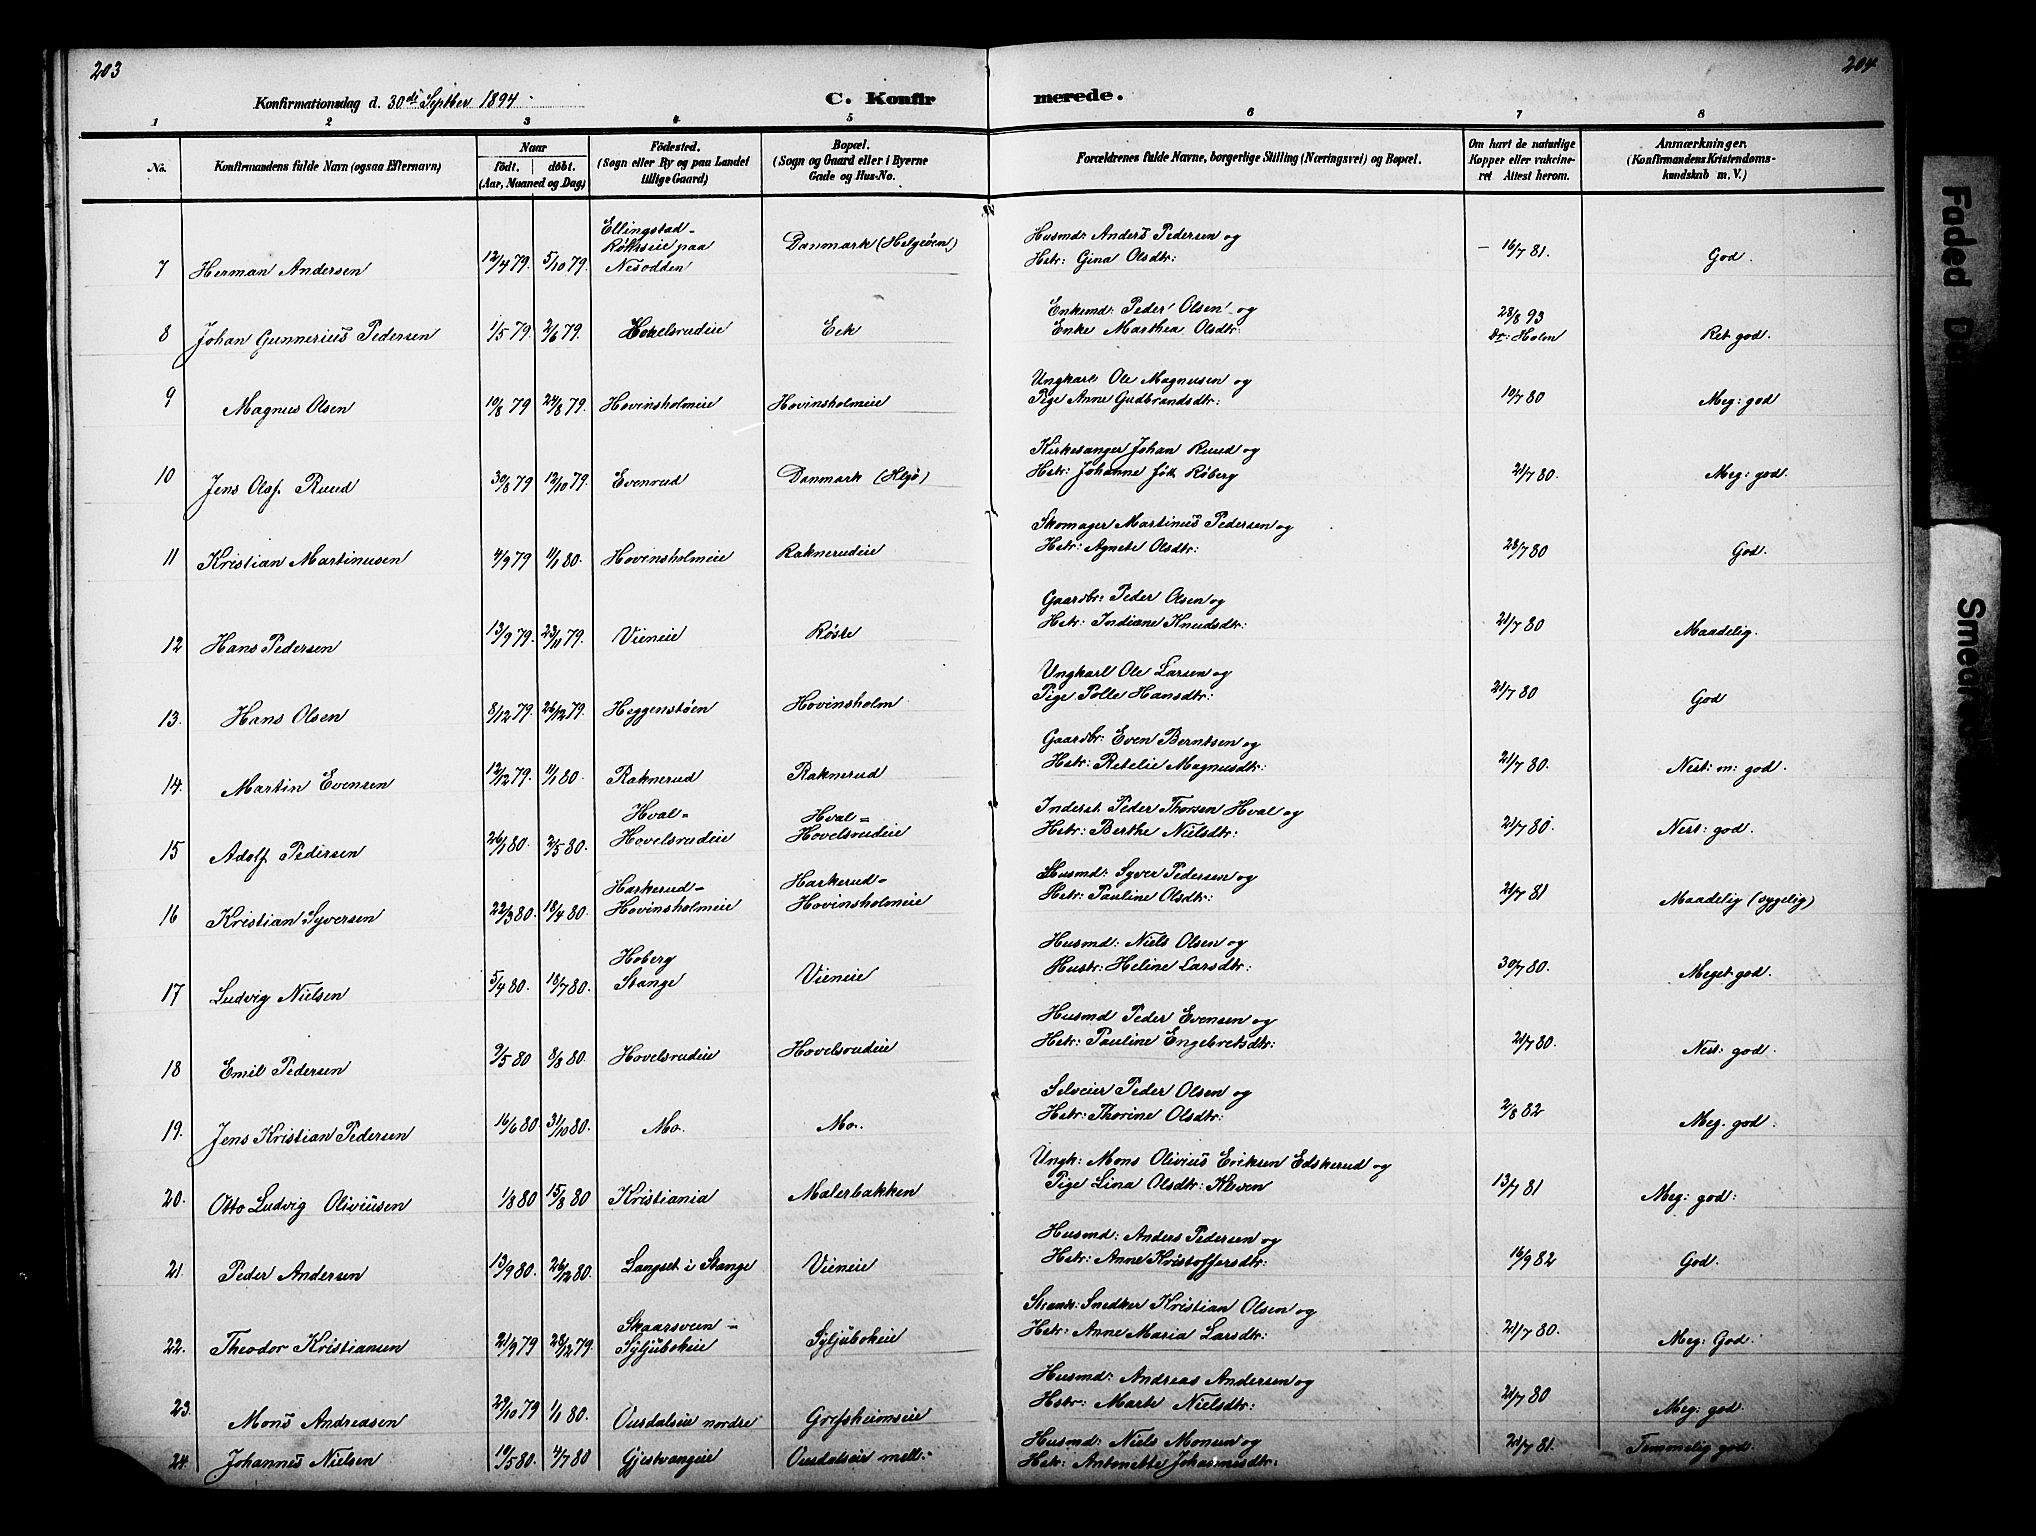 203
204
Konfirmationsdag d. 30de Septber 1894
C. Konfirmerede.
1 2 3 4 5 6 7 8
No. Konfirmandens fulde Navn (ogsaa Efternavn) Naar født, døbt. (Aar, Maaned og Dag) Fødested. (Sogn eller By og paa Landet tillige Gaard) Bopæl. (Sogn og Gaard eller i Byerne Gade og Hus-No. Forældrenes fulde Navne, borgerlige Stilling (Næringsvei) og Bopæl. Om havt de naturlige Kopper eller vakcineret Attest herom. Anmærkninger. (Konfirmandens Kristendomskundskab m. V.)
7 Herman Andersen 12/4 79. 5/10 79. Ellingstad- Røkseie paa Nesodden Danmark (Helgøen) Husmd: Anders Pedersen og Hstr: Gina Olsdtr: - 16/7 81. God.
8 Johan Gunnerius Pedersen 1/5 79. 2/6 79. Hovelsrudeie Eek Enkemd: Peder Olsen og Enke Marthea Olsdtr: 28/8 93 Dr: Holm Ret god.
9 Magnus Olsen 10/8 79 24/8 79. Hovinsholmeie Hovinsholmeie Ungkarl Ole Magnusen og Pige Anne Gudbrandsdtr: 10/7 80 Meg: god
10 Jens Olaf Ruud 30/8 79 12/10 79. Evenrud Danmark (Hlgø) Kirkesanger Johan Ruud og Hstr: Johanne født Røberg 21/7 80. Meg: god.
11 Kristian Martinusen 4/9 79 1/1 80. Hovinsholmeie Raknerudeie Skomager Martinus Pedersen og Hstr: Agnete Olsdtr: 28/7 80 God.
12 Hans Pedersen 13/9 79. 23/11 79. Vieneie Røste Gaardbr: Peder Olsen og Hstr: Indiane Knudsdtr: 21/7 80 Maadelig.
13. Hans Olsen 8/12 79. 26/12 79. Heggenstøen Hovinsholm Ungkarl Ole Larsen og Pige Polle Hansdtr: 21/7 80 God
14. Martin Evensen 12/12 79. 1/1 80. Raknerud Raknerud Gaardbr: Even Berntsen og Hstr: Retelie Magnusdtr: 21/7 80. Nest: m: god.
15 Adolf Pedersen 26/1 80. 2/5 80. Hval= Hovelsrudeie Hval= Hovelsrudeie Inderst Peder Thorsen Hval og Hstr: Berthe Nielsdtr: 21/7 80. Nest: god.
16 Kristian Syversen 22/3 80. 18/4 80. Harkerud= Hovinsholmeie Harkerud= Hovinsholmeie Husmd: Syver Pedersen og Hstr: Pauline Olsdtr: 21/7 81 Maadelig (sygelig)
17 Ludvig Nielsen 5/4 80. 18/7 80. Hoberg Stange Vieneie Husmd: Niels Olsen og Hustr: Heline Larsdtr: 30/7 80. Meget god.
18 Emil Pedersen 9/5 80 8/8 80. Hovelsrudeie Hovelsrudeie Husmd Peder Evensen og Hstr: Pauline Engebretsdtr: 21/7 80. Nest: god.
19. Jens Kristian Pedersen 16/6 80 31/10 80. Mo. Mo. Selveier Peder Olsen og Hstr: Thorine Olsdtr: 2/8 82 Meg. god.
20. Otto Ludvig Oliviusen 1/8 80 15/8 80 Kristiania Malerbakken Ungk: Mons Olivius Eriksen Edskerud og Pige Lina Olsdtr: Kleven 13/7 81 Meg: god:
21. Peder Andersen 13/9 80. 26/12 80. Langset i Stange Vieneie Husmd: Anders Pedersen og Hstr: Anne Kristoffersdtr: 16/9 82 God.
22. Theodor Kristiansen 21/9 79 28/12 79. Skaarsveen= Syljubokeie Syljubokeie Snedker Kristian Olsen og Hstr: Anne Maria Larsdtr: 21/7 80. Meg: God.
23. Mons Andreasen 22/10 79 1/1 80. Ousdalseie nordre Grefsheimseie Husmd: Andreas Andersen og Hstr: Marte Nielsdtr: 21/7 80 Meg: god.
24. Johannes Nielsen 10/5 80. 4/7 80 Gjestvangeie Ousdalseie mell: Husmd: Niels Monsen og Hstr: Antonette Johannesdtr: 21/7 81. Temmelig god.
Faded
Smeared